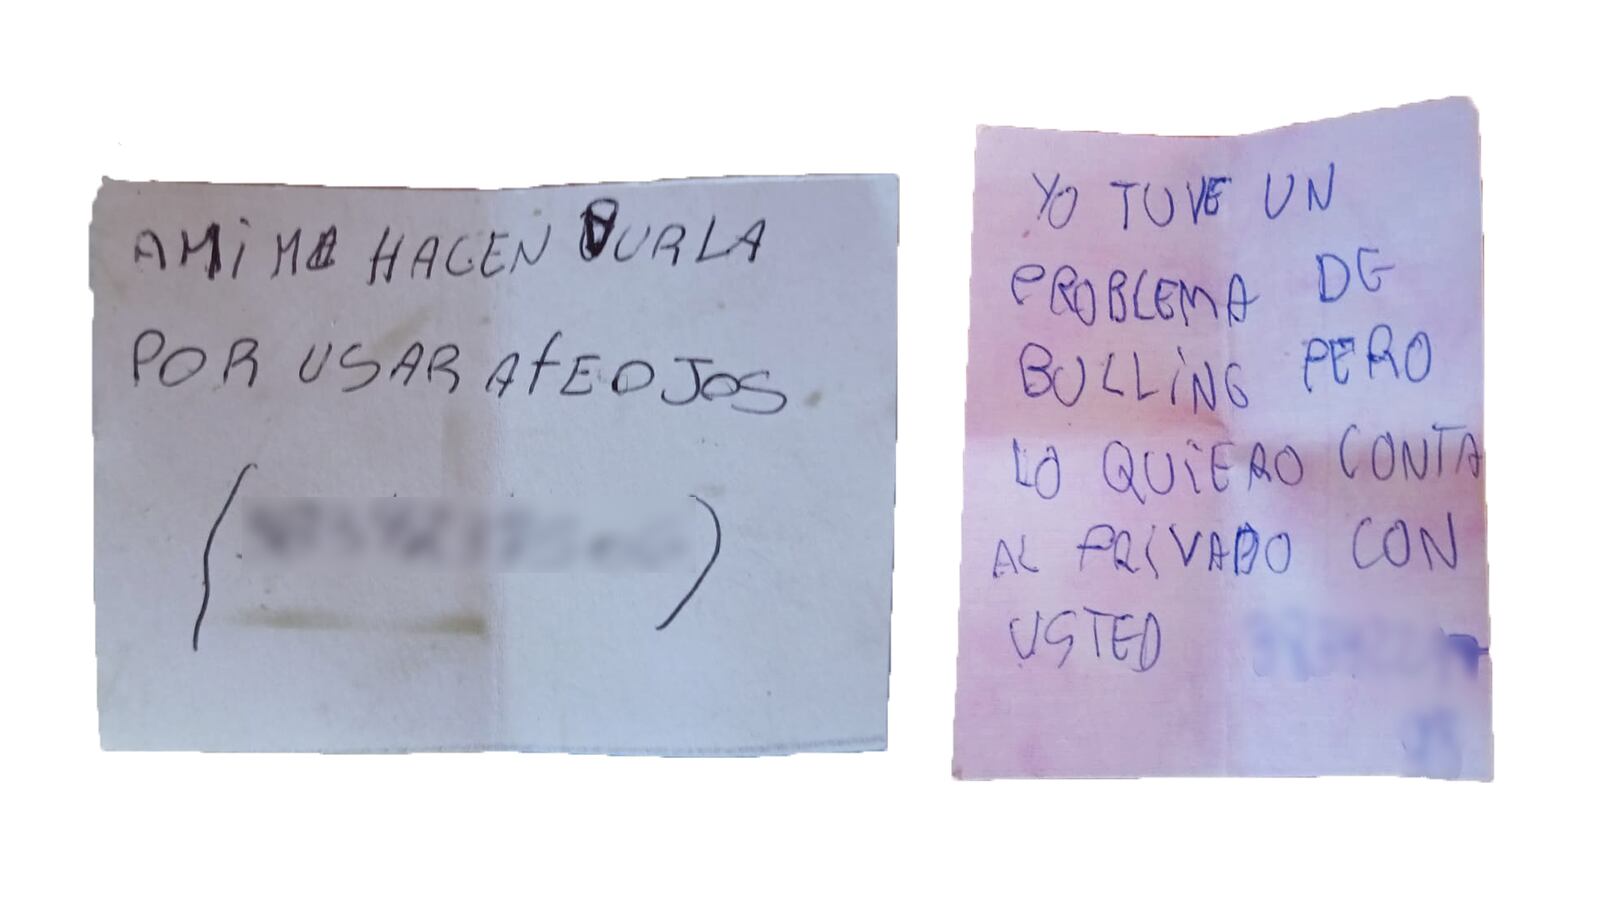 AMi ME HACEN BURLA
POR USAR AfEOJOS
YO TUVE UN
PROBLEMA DE
BULLiNG PERO
LO QUiERO CONTA
AL PRiVADO CON
USTED